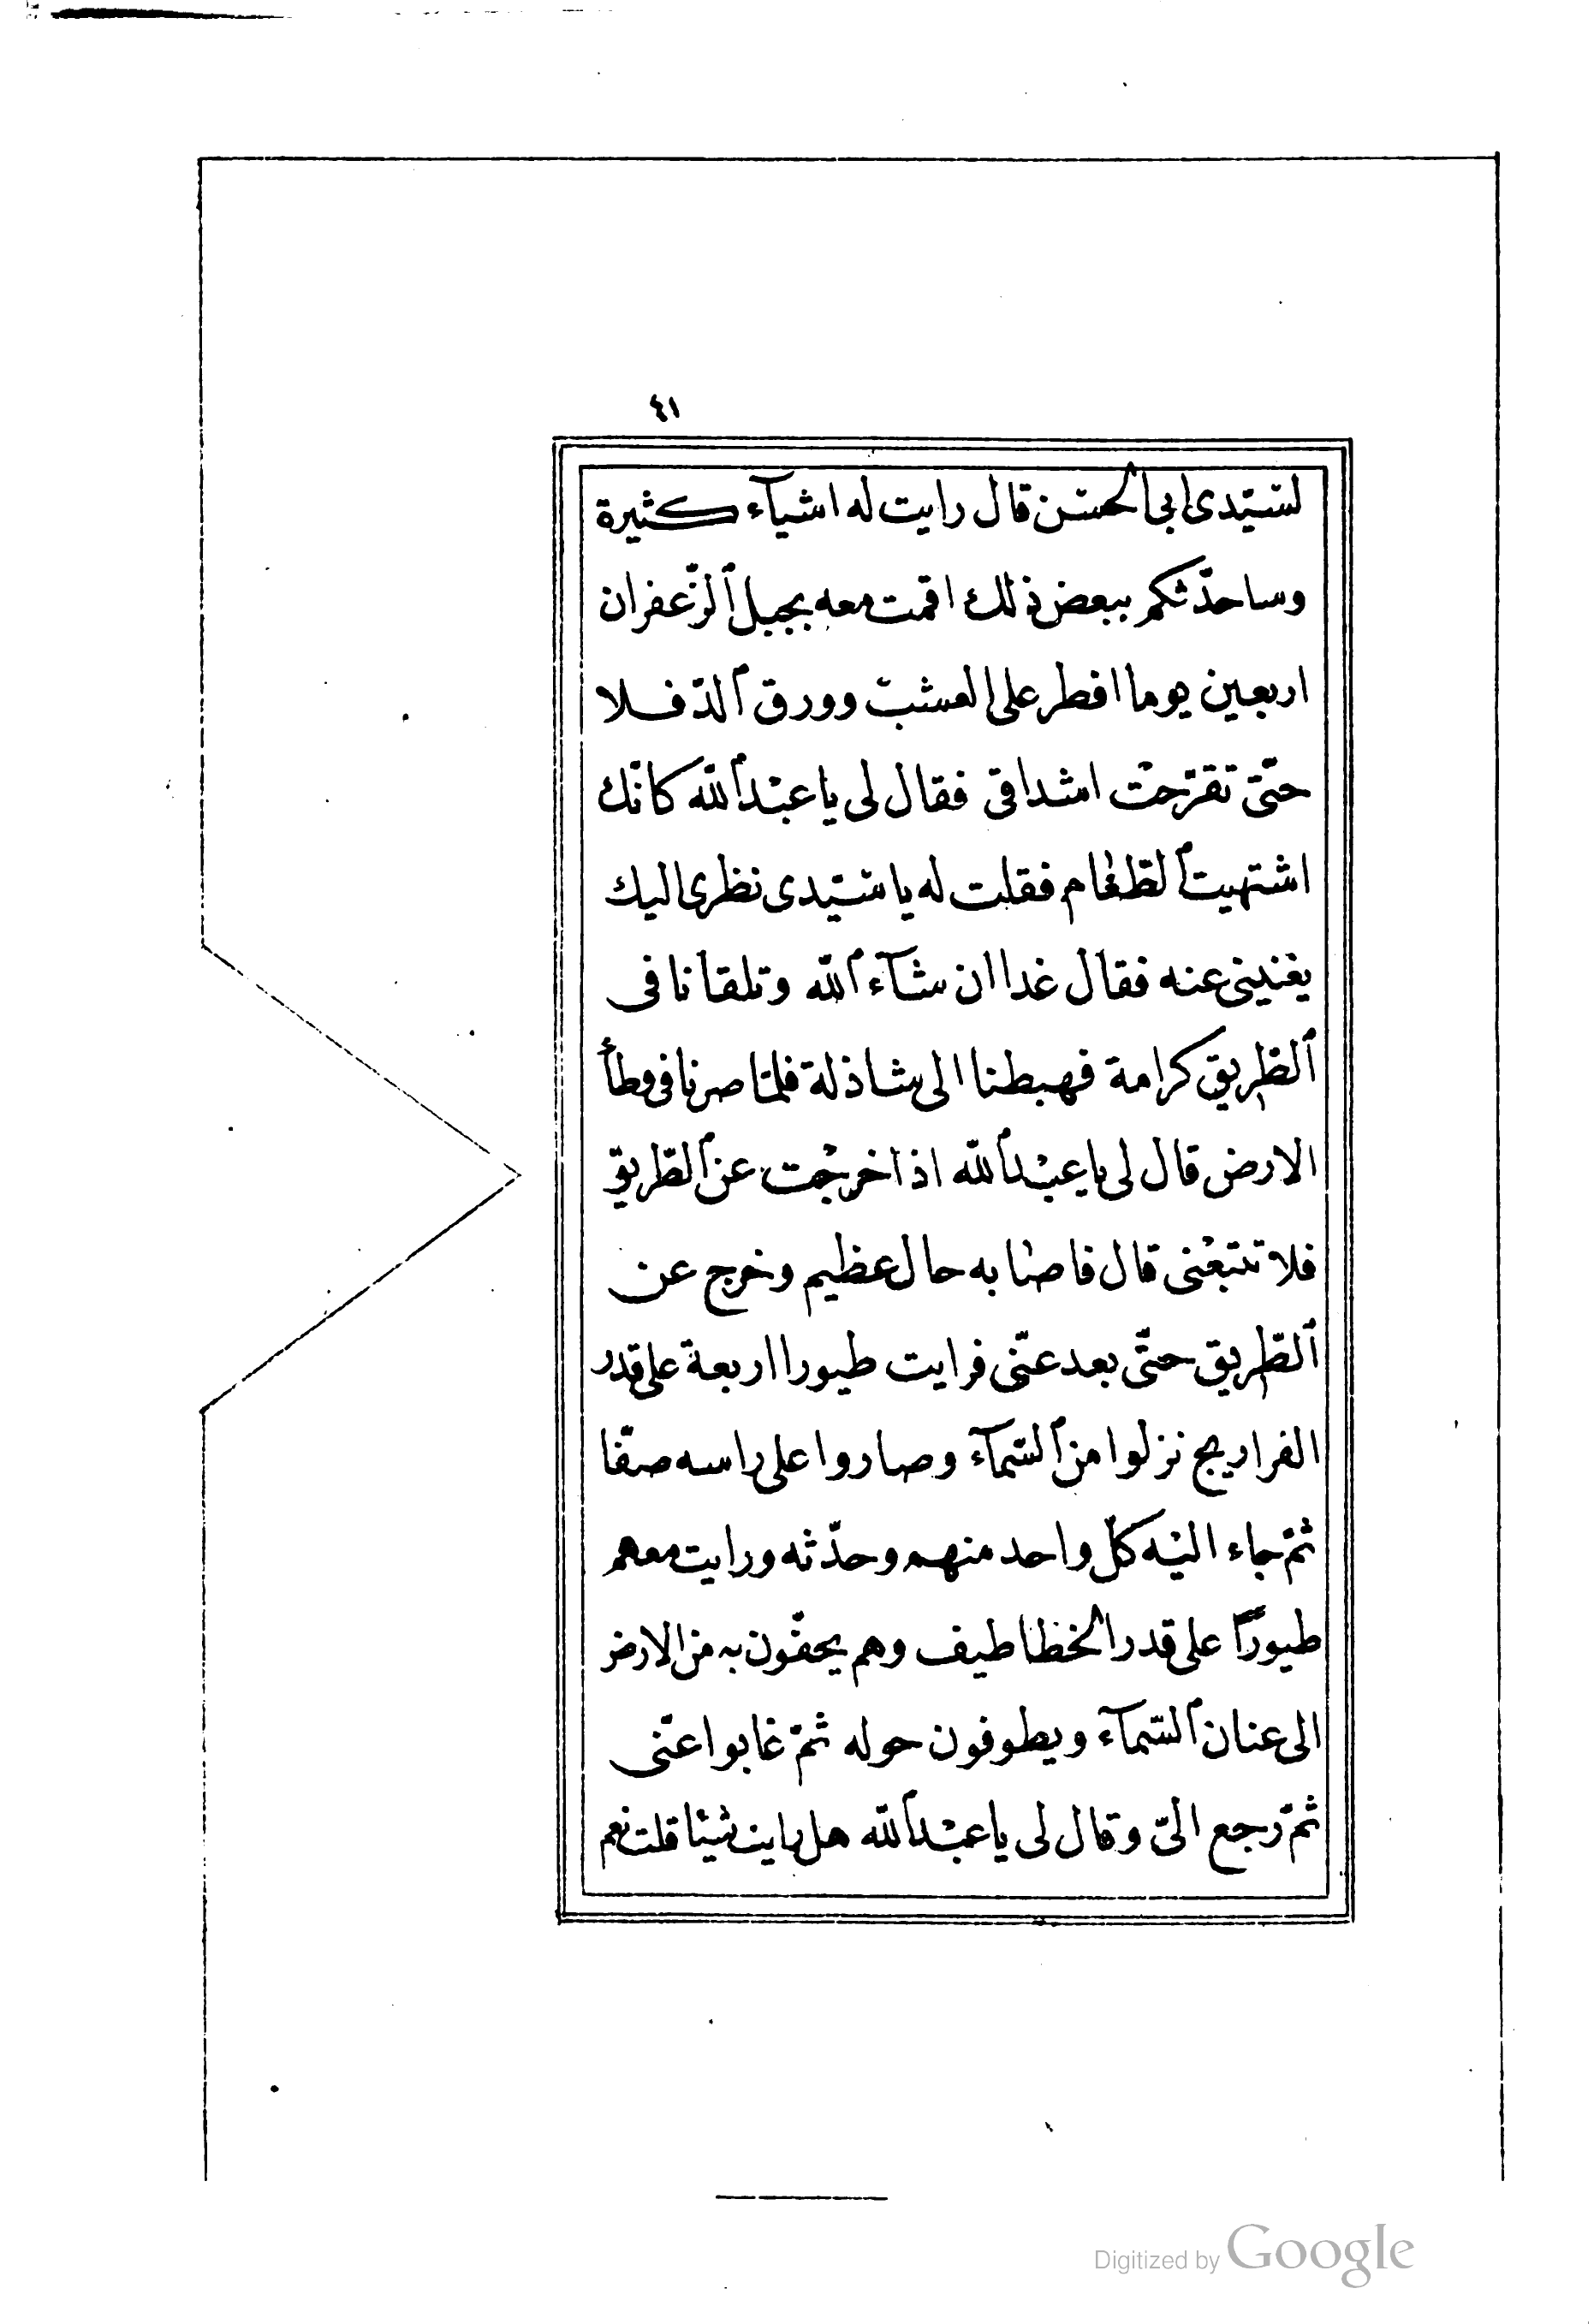 ٤١
لسيّدى ابى الحسن قال رايت له اشيآء كثيرة
وساحدّثكم ببعض ذلك اقمت معه بجبل ٱلزّعفران
اربعين يوما افطر على العشب وورق ٱلدّفلا
حتّى تقرّحت اشداقى فقال لى يا عبْد ٱللّه كانّك
اشتهيت ٱلطّعام فقلت له يا سيّدى نظرى اليك
يغنينى عنه فقال غدا ان شآء ٱللّه وتلقانا فى
ٱلطّريق كرامة فهبطنا الى شاذلة فلمّا صرنا فى وطأ
الارض قال لى يا عبْد ٱللّه اذا خرجْت عن ٱلطّريق
فلا تتبعْنى قال فاصابه حال عظيم وخرج عن
ٱلطّريق حتّى بعد عنّى فرايت طيورا اربعة على قدر
الفراريج نزلوا من ٱلسّمآء وصاروا على راسه صفّا
ثمّ جاء اليْه كلّ واحد منهم وحدّثه ورايت معهم
طيورًا على قدر الخطاطيف وهم يحفّون به من الارض
الى عنان ٱلسّمآء ويطوفون حوله ثمّ غابوا عنّى
ثمّ رجع الىّ وقال لى يا عبْد ٱللّه هل رايت شيئا قلت نعم
Digitized by Google